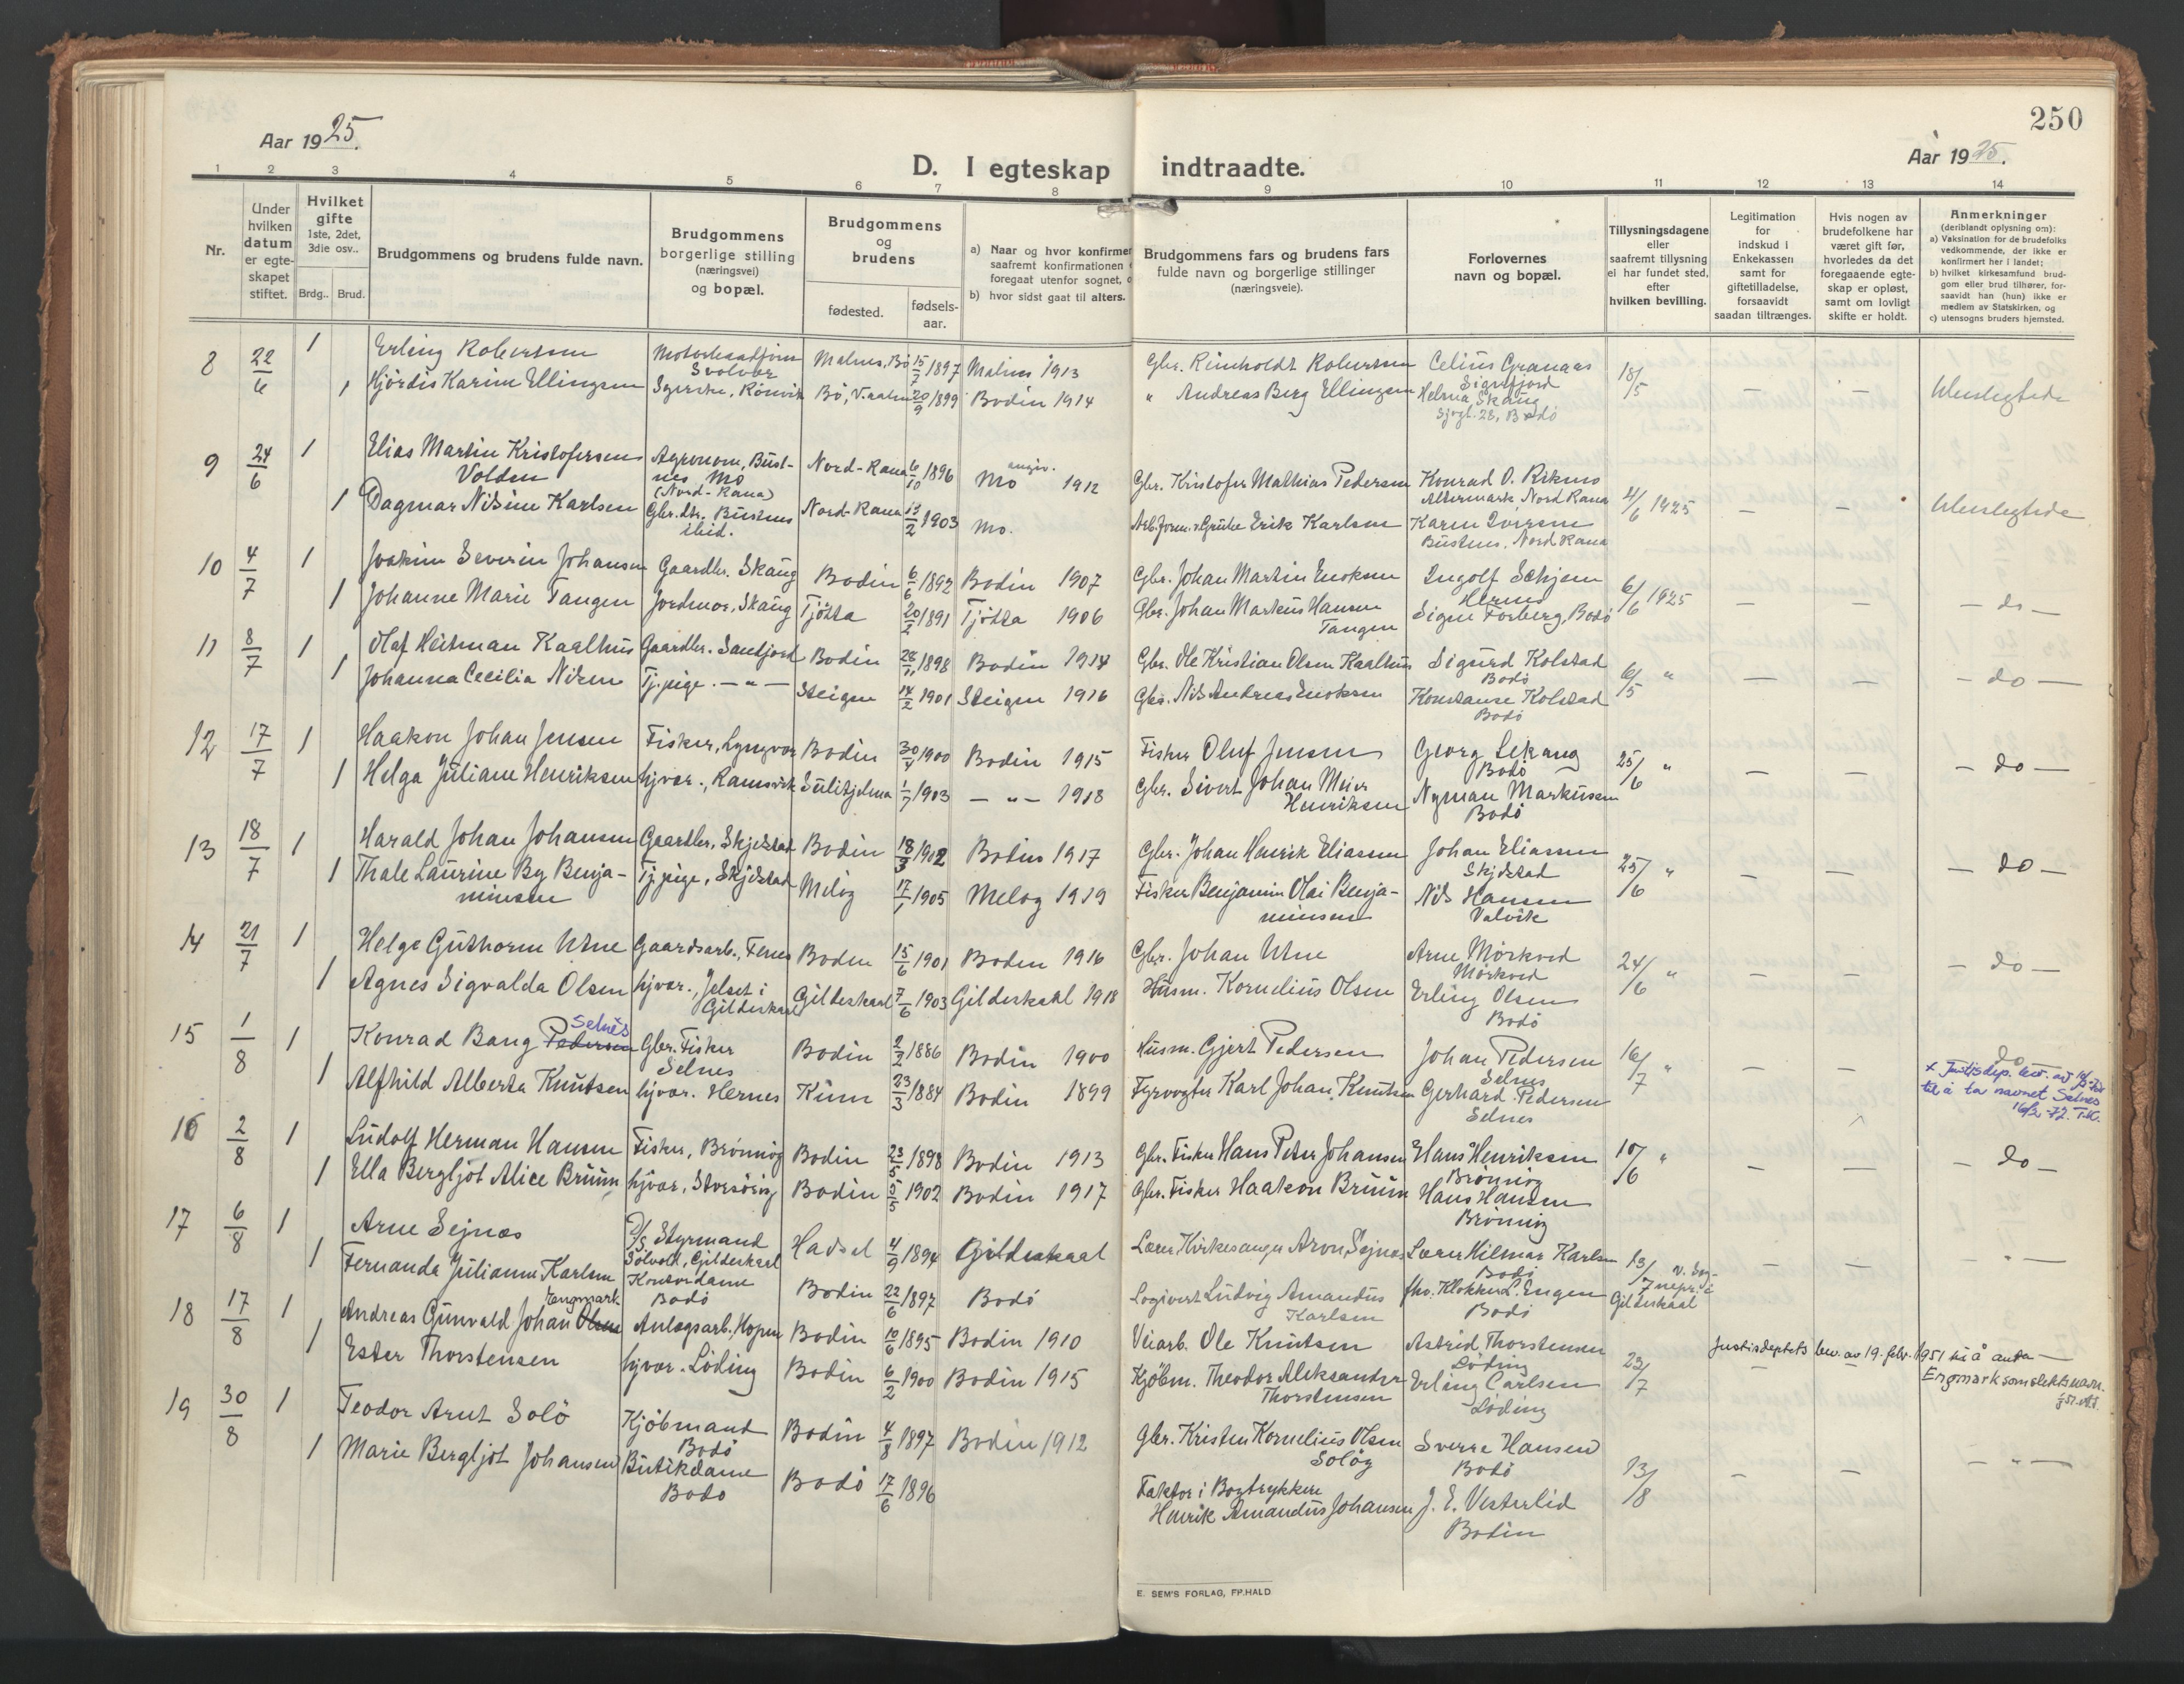 250
Aar 1925.
D. I egteskap indtraadte.
Aar 1925.
1 2 3 4 5 6 7 8 9 10 11 12 13 14
Nr.
Under
hvilken
datum
er egte-
skapet
stiftet.
Hvilket
gifte
1ste, 2det,
3die osv..
Brdg.. Brud.
Brudgommens og brudens fulde navn.
Brudgommens
borgerlige stilling
(næringsvei)
og bopæl.
Brudgommens
og
brudens
fødested.
fødsels-
aar.
a) Naar og hvor konfirmer
saafremt konfirmationen
foregaat utenfor sognet,
b) hvor sidst gaat til alters.
Brudgommens fars og brudens fars
fulde navn og borgerlige stillinger
(næringsveie).
Forlovernes
navn og bopæl.
Tillysningsdagene
eller
saafremt tillysning
ei har fundet sted,
efter
hvilken bevilling.
Legitimation
for
indskud i
Enkekassen
samt for
giftetilladelse,
forsaavidt
saadan tiltrænges.
Hvis nogen av
brudefolkene har
været gift før,
hvorledes da det
foregaaende egte-
skap er opløst,
samt om lovligt
skifte er holdt.
Anmerkninger
(deriblandt oplysning om):
a) Vaksination for de brudefolks
vedkommende, der ikke er
konfirmert her i landet;
b) hvilket kirkesamfund brud-
gom eller brud tilhører, for-
saavidt han (hun) ikke er
medlem av Statskirken, og
c) utensogns bruders hjemsted.
8 22/6 1 Erling Robertsen Svolvær Malnes, Bø 15/7 1897 Malnes 1913 Gbr. Reinholdt Robertsen Celius Granaas 18/5
Sigerfjord
1 Hjördis Karine Ellingsen Rönvik Bö, V.aalen 20/9 1899 Bodin 1914 " Andreas Berg Ellingsen Helma Skaug — — Ubeslegtede
Sjøgt. 28, Bodö
9 24/6 1 Elias Martin Kristofersen Agronom, Bust- Nord-Rana 6/10 1896 Mo angiv. 1912 Gbr. Kristofer Mathias Pedersen Konrad O. Rikmo
Volden nes, Mo Altermark, Nord Rana
(Nord-Rana)
1 Dagmar Nisine Karlsen Gbr.dtr. Bustnes Nord-Rana 13/2 1903 Mo. Arb.form. v. Grube Erik Karlsen Karen Iversen 4/6 1925 — — Ubeslegtede
ibid. Bustnes, Nord Rana
10 4/7 1 Joakim Severin Johansen Gaardbr. Skaug Bodin 6/6 1892 Bodin 1907 Gbr. Johan Martin Enoksen Ingolf Schjem
Hernes
1 Johanne Marie Tangen Jordmor, Skaug Tjötta 20/2 1891 Tjötta 1906 Gbr. Johan Markus Hansen Signe Forberg, Bodö 6/6 1925 — — — do —
Tangen
11 8/7 1 Olaf Heitman Kaalhus Gaardbr. Sandjord Bodin 1898 Bodin 1914 Gbr. Ole Kristian Olsen Kaalhus Sigurd Kolstad
Bodö
1 Johanna Cecilia Nilsen Tj.pige. — " — Steigen 14/2 1901 Steigen 1916 Gbr. Nils Andreas Enoksen Konstanse Kolstad 6/5 " — — — do —
Bodö
12 17/7 1 Haakon Johan Jensen Fisker, Lyngvær Bodin 30/4 1900 Bodin 1915 Fisker Oluf Jensen Georg Lekang 25/6 "
Bodö
1 Helga Juliane Henriksen hjvær., Ramsvik Sulitjelma 1/7 1903 — " — 1918 Gbr. Sivert Johan Meier Nyman Markusen — — — do —
Henriksen Bodö
13 18/7 1 Harald Johan Johansen Gaardbr., Skjelstad Bodin 18/3 1902 Bodin 1917 Gbr. Johan Henrik Eliassen Johan Eliassen
Skjelstad
1 Thale Laurine By Benja- Tj.pige, Skjelstad Melöy 17/1 1905 Meløy 1919 Fisker Benjamin Olai Benja- Nils Hansen 25/6 " — — — do —
minsen minsen Valvik
14 21/7 1 Helge Guthorm Utne Gaardsarb., Fenes Bodin 15/6 1901 Bodin 1916 Gbr. Johan Utne Arne Mörkved
Mörkved
1 Agnes Sigvalda Olsen hjvær., Jelset i Gildeskaal 7/6 1903 Gildeskaal 1918 Husm. Kornelius Olsen Erling Olsen 24/6 " — — — do —
Gildeskaal Bodö
15 1/8 1 Konrad Bang Pedersen Selnes Gbr. Fisker Bodin 2/2 1886 Bodin 1900 Husm. Gjert Pedersen Johan Pedersen 16/7 " do
Selnes Selnes
1 Alfhild Alberta Knutsen hjvær. Hernes Kinn 23/3 1884 Bodin 1899 Fyrvogter Karl Johan Knutsen Gerhard Pedersen
Selnes
x Justisdep. bev. av
til å ta navnet Selnes
16/2-72.
16 2/8 1 Ludolf Herman Hansen Fisker, Brönnöy Bodin 23/5 1898 Bodin 1913 Gbr. Fisker Hans Peter Johansen Hans Henriksen 10/6 "
Brönnöy
1 Ella Bergljot Alice Bruun hjvær, Storsöröy Bodin 5/5 1902 Bodin 1917 Gbr. Fisker Haakon Bruun Hans Hansen — — — do —
Brönnöy
17 6/8 1 Arne Sejnæs D/S Styrmand Hadsel 4/9 1894 Gildeskaal Lærer, Kirkesanger Aron Sejnæs Lærer Hilmar Karlsen
Sölvold, Gildeskaal Bodö
1 Fernanda Julianne Karlsen Kontordame Bodin 22/6 1897 Bodö Logivert Ludvig Amandus fhv. Klokker L. Engen 13/7 — — — " —
Bodö Karlsen Bodö Gildeskaal
18 17/8 1 Andreas Gunvald Johan Olsen Engmark Anlegsarb. Hopen Bodin 10/6 1895 Bodin 1910 Veiarb. Ole Knutsen Astrid Thorstensen
Löding
1 Ester Thorstensen hjvær. Löding Bodin 6/2 1900 Bodin 1915 Kjöbm. Theodor Aleksander Erling Carlsen 23/7
Thorstensen Löding
Justisdeptets bev. av 19. febr. 1951 til å anta
Engmark som slektsnavn.
19 30/8 1 Teodor Arnt Solö Kjöbmand Bodin 4/8 1897 Bodin 1912 Gbr. Kristen Kornelius Olsen Sverre Hansen
Bodö Solöy Bodö
1 Marie Bergljot Johansen Butikdame Bodö 17/6 1896 Faktor i Bogtrykkeri J. E. Vesterlid 13/8 — — — " —
Bodö Henrik Amandus Johansen Bodin
E. SEM'S FORLAG, FP.HALD